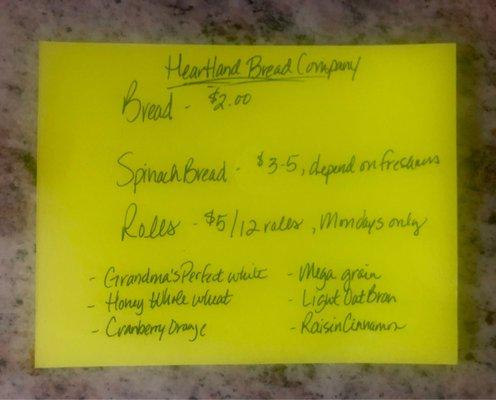 Heartland Bread Company
Bread - $2.00
Spinach Bread - $3-5, depend on freshness
Rolls - $5/12 rolls, Mondays only
- Grandma's Perfect White
- Honey Whole Wheat
- Cranberry Orange
- Mega grain
- Light Oat Bran
- Raisin Cinnamon